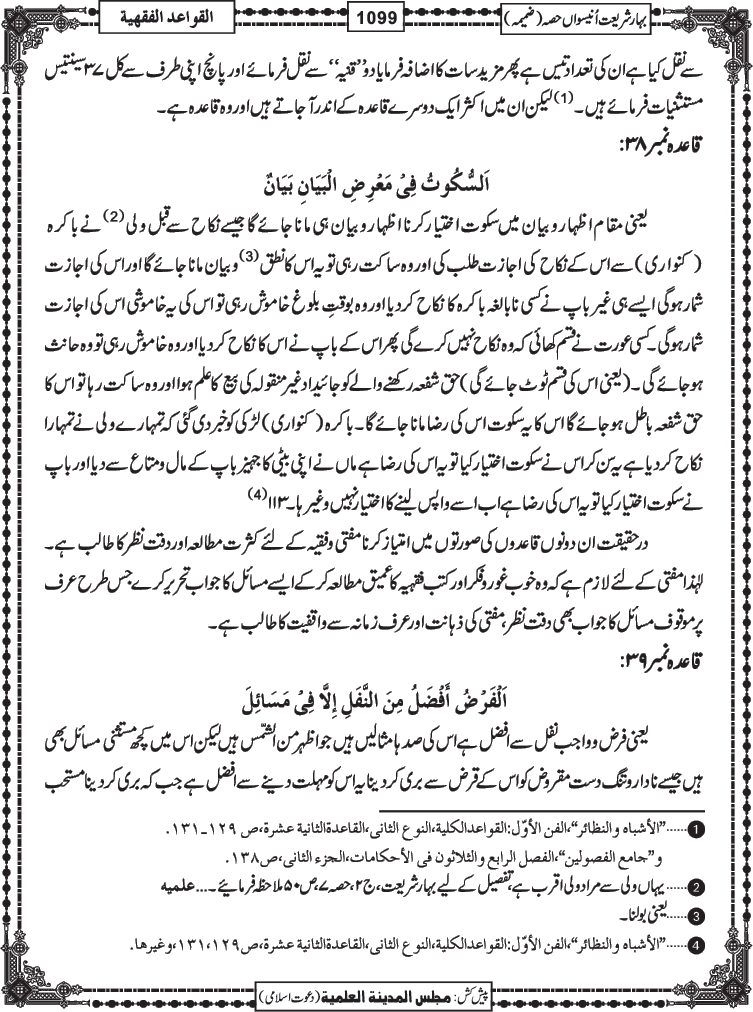 بہارِشریعت اُنیسواں حصہ (ضمیمہ)
1099
القواعد الفقهية
سے نقل کیا ہے ان کی تعداد تیس ہے پھر مزید سات کا اضافہ فرمایا دو ’’قنیہ‘‘ سے نقل فرمائے اور پانچ اپنی طرف سے کل ۳۷ سینتیس
مستثنیات فرمائے ہیں۔(1) لیکن ان میں اکثر ایک دوسرے قاعدہ کے اندر آجاتے ہیں اور وہ قاعدہ ہے۔
قاعدہ نمبر ۳۸:
اَلسُّکُوتُ فِیْ مَعْرِضِ الْبَیَانِ بَیَانٌ
یعنی مقام اظہار و بیان میں سکوت اختیار کرنا اظہار و بیان ہی مانا جائے گا جیسے نکاح سے قبل ولی (2) نے باکرہ
(کنواری) سے اس کے نکاح کی اجازت طلب کی اور وہ ساکت رہی تو یہ اس کا نطق (3) و بیان مانا جائے گا اور اس کی اجازت
شمار ہوگی ایسے ہی غیر باپ نے کسی نابالغہ باکرہ کا نکاح کردیا اور وہ بوقتِ بلوغ خاموش رہی تو اس کی یہ خاموشی اس کی اجازت
شمار ہوگی۔ کسی عورت نے قسم کھائی کہ وہ نکاح نہیں کرے گی پھر اس کے باپ نے اس کا نکاح کردیا اور وہ خاموش رہی تو وہ حانث
ہوجائے گی۔ (یعنی اس کی قسم ٹوٹ جائے گی) حق شفعہ رکھنے والے کو جائیداد غیر منقولہ کی بیع کا علم ہوا اور وہ ساکت رہا تو اس کا
حق شفعہ باطل ہوجائے گا اس کا یہ سکوت اس کی رضا مانا جائے گا۔ باکرہ (کنواری) لڑکی کو خبر دی گئی کہ تمہارے ولی نے تمہارا
نکاح کردیا ہے یہ سن کر اس نے سکوت اختیار کیا تو یہ اس کی رضا ہے ماں نے اپنی بیٹی کا جہیز باپ کے مال و متاع سے دیا اور باپ
نے سکوت اختیار کیا تو یہ اس کی رضا ہے اب اسے واپس لینے کا اختیار نہیں وغیرہا۔ ۱۱۳(4)
درحقیقت ان دونوں قاعدوں کی صورتوں میں امتیاز کرنا مفتی و فقیہ کے لئے کثرت مطالعہ اور دقت نظر کا طالب ہے۔
لہٰذا مفتی کے لئے لازم ہے کہ وہ خوب غور و فکر اور کتب فقہیہ کا عمیق مطالعہ کرکے ایسے مسائل کا جواب تحریر کرے جس طرح عرف
پر موقوف مسائل کا جواب بھی دقت نظر، مفتی کی ذہانت اور عرف زمانہ سے واقفیت کا طالب ہے۔
قاعدہ نمبر ۳۹:
اَلْفَرْضُ أَفْضَلُ مِنَ النَّفَلِ إِلَّا فِیْ مَسَائِلَ
یعنی فرض و واجب نفل سے افضل ہے اس کی صدہا مثالیں ہیں جو اظہر من الشّمس ہیں لیکن اس میں کچھ مستثنی مسائل بھی
ہیں جیسے نادار و تنگ دست مقروض کو اس کے قرض سے بری کردینا یہ اس کو مہلت دینے سے افضل ہے جب کہ بری کردینا مستحب
1 ......"الأشباہ والنظائر"،الفن الأوّل:القواعد الکلیۃ،النوع الثانی،القاعدۃ الثانیۃ عشرۃ،ص ۱۲۹۔۱۳۱.
و"جامع الفصولین"،الفصل الرابع والثلاثون فی الأحکامات،الجزء الثانی،ص۱۳۸.
2 ...... یہاں ولی سے مراد ولی اقرب ہے، تفصیل کے لیے بہارِشریعت، ج۲، حصہ ۷، ص ۵۰ ملاحظہ فرمائیے۔...علمیہ
3 ......یعنی بولنا۔
4 ......"الأشباہ والنظائر"،الفن الأوّل:القواعد الکلیۃ،النوع الثانی،القاعدۃ الثانیۃ عشرۃ،ص۱۲۹،۱۳۱،وغیرھا.
پیش کش: مجلس المدینۃ العلمیۃ (دعوتِ اسلامی)